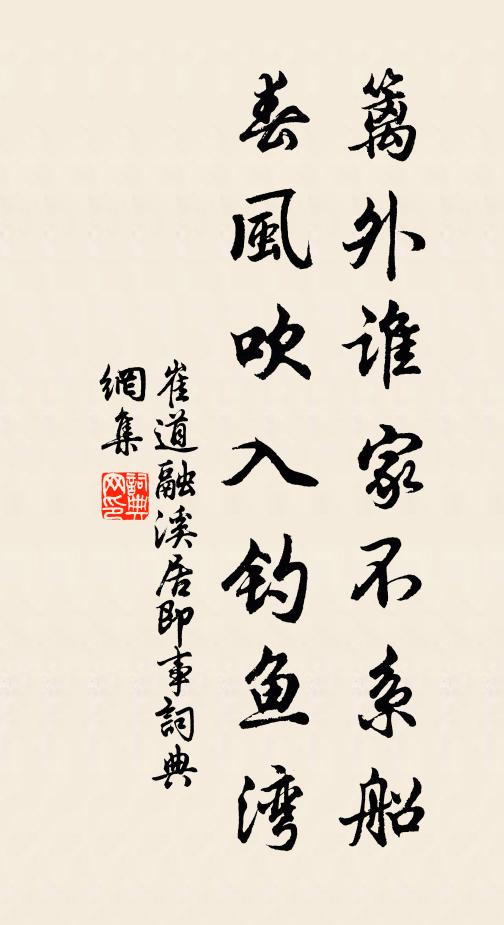 篱外谁家不系船
春風吹入钓鱼湾
崔道融溪居即事詞典
網集
詞典
网印